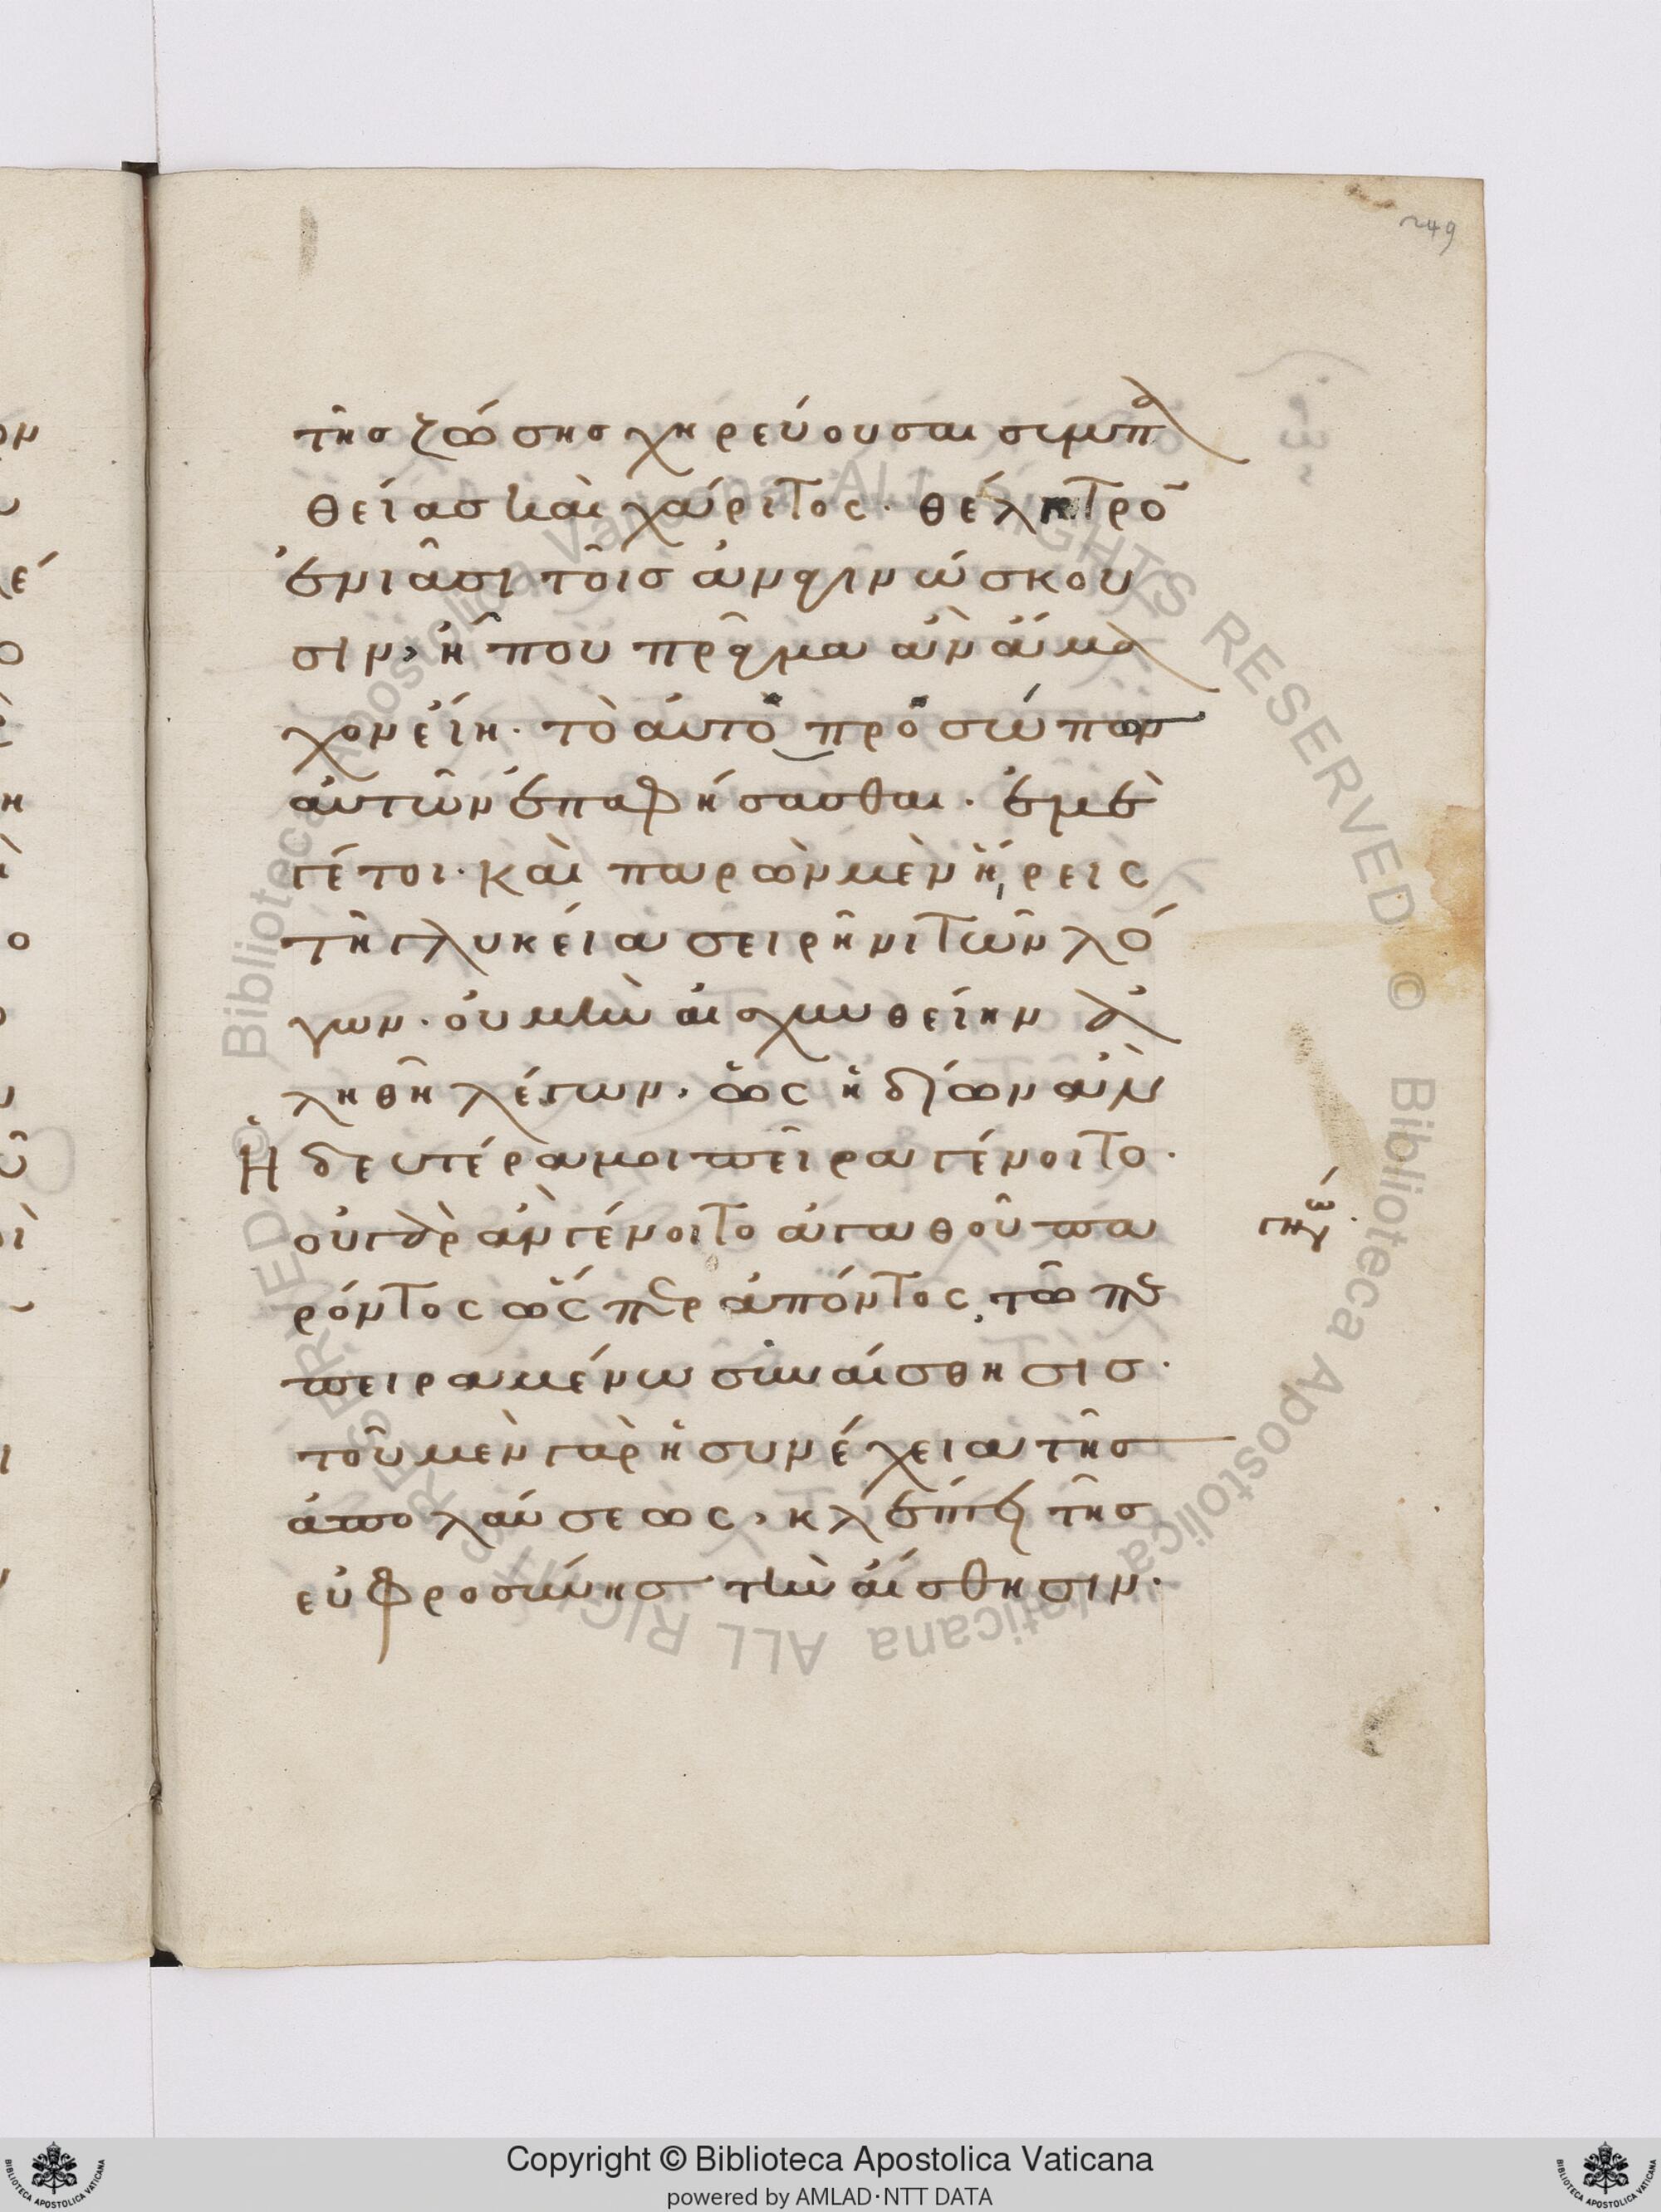 249
τῆσ ζώσησ χηρεύουσαι συμπα
θείασ καὶ χάριτος· θέλητρο̃
ἐνιᾶσι τοῖσ ἀναγινώσκου
σιν, ἦ που πρᾶγμα ἂν ἄμα
χον εἴη· τὸ αὐτο προσώπων
αὐτῶν ἐπαφήσασθαι. ἐμὲ
γέ τοι· καὶ παρὼν μὲν ἤρεις
τῆ γλυκεία σειρῆνι τῶν λό
γων· οὐ μὴν αἰσχυνθείην ἀ
ληθῆ λέγων, ὡς ἡδίων ἂν
Ἡ δευτέρα μοι πεῖρα γένοιτο·
οὐ γὰρ ἂν γένοιτο ἀγαθοῦ πα
ρόντος ὥσπερ ἀπόντος, τῶ πε
πειραμένω συναίσθησισ·
τοῦ μὲν γὰρ ἡ συνέχεια τῆσ
ἀπολαύσεως, κλέπτει τῆσ
εὐφροσύνησ τὴν αἴσθησιν·
γνώ
Copyright © Biblioteca Apostolica Vaticana
powered by AMLAD·NTT DATA